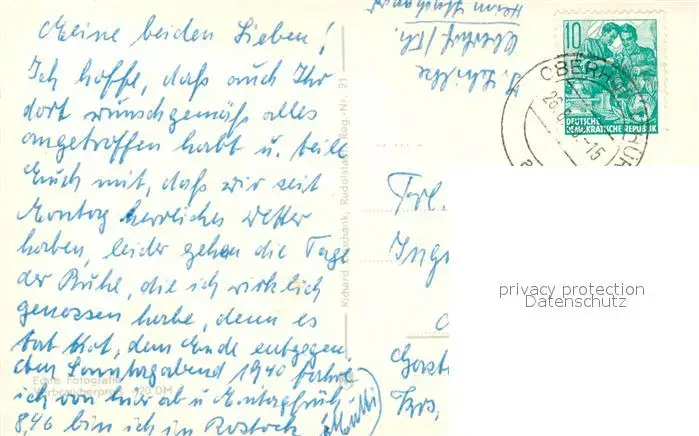 Meine beiden Lieben!
Ich hoffe, daß auch Ihr
dort wunschgemäß alles
angetroffen habt u. teile
Euch mit, daß wir seit
Montag herrliches Wetter
haben, leider gehen die Tage
der Ruhe, die ich wirklich
genossen habe, denn es
tat Not, dem Ende entgegen
den Sonntagabend 19,40 fahre
ich von hier ab u. Montagfrüh
8,46 bin ich in Rostock (Mutti)
Echte Fotografie
Verbraucherpreis DM
Richard Rudolstadt, Reg.-Nr. 21
Oberhof/Th.
10
DEUTSCHE
DEMOKRATISCHE REPUBLIK
OBERHOF
Frl.
privacy protection
Datenschutz